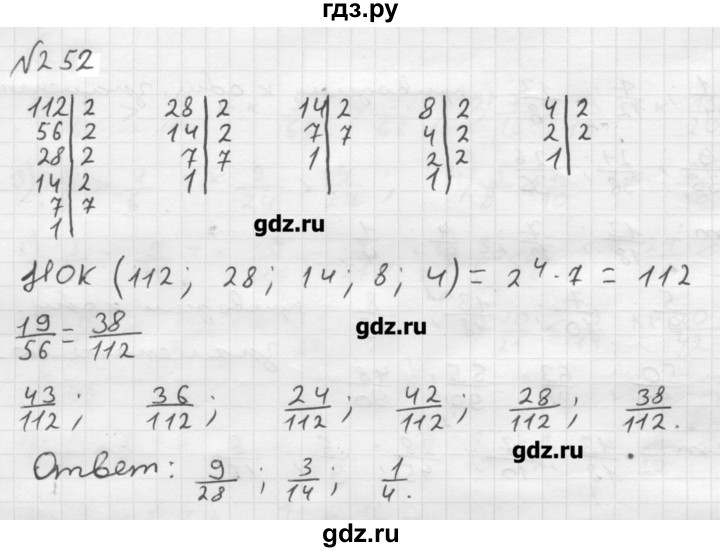 гдз.ру
№252
112|2 28|2 14|2 8|2 4|2
56|2 14|2 7|7 4|2 2|2
28|2 7|7 1| 2|2 1|
14|2 1| 1|
7|7
1|
gdz.ru
НОК (112; 28; 14; 8; 4) = 2⁴·7 = 112
19/56 = 38/112
gdz.ru
43/112; 36/112; 24/112; 42/112; 28/112; 38/112.
gdz.ru
Ответ: 9/28; 3/14; 1/4.
gdz.ru